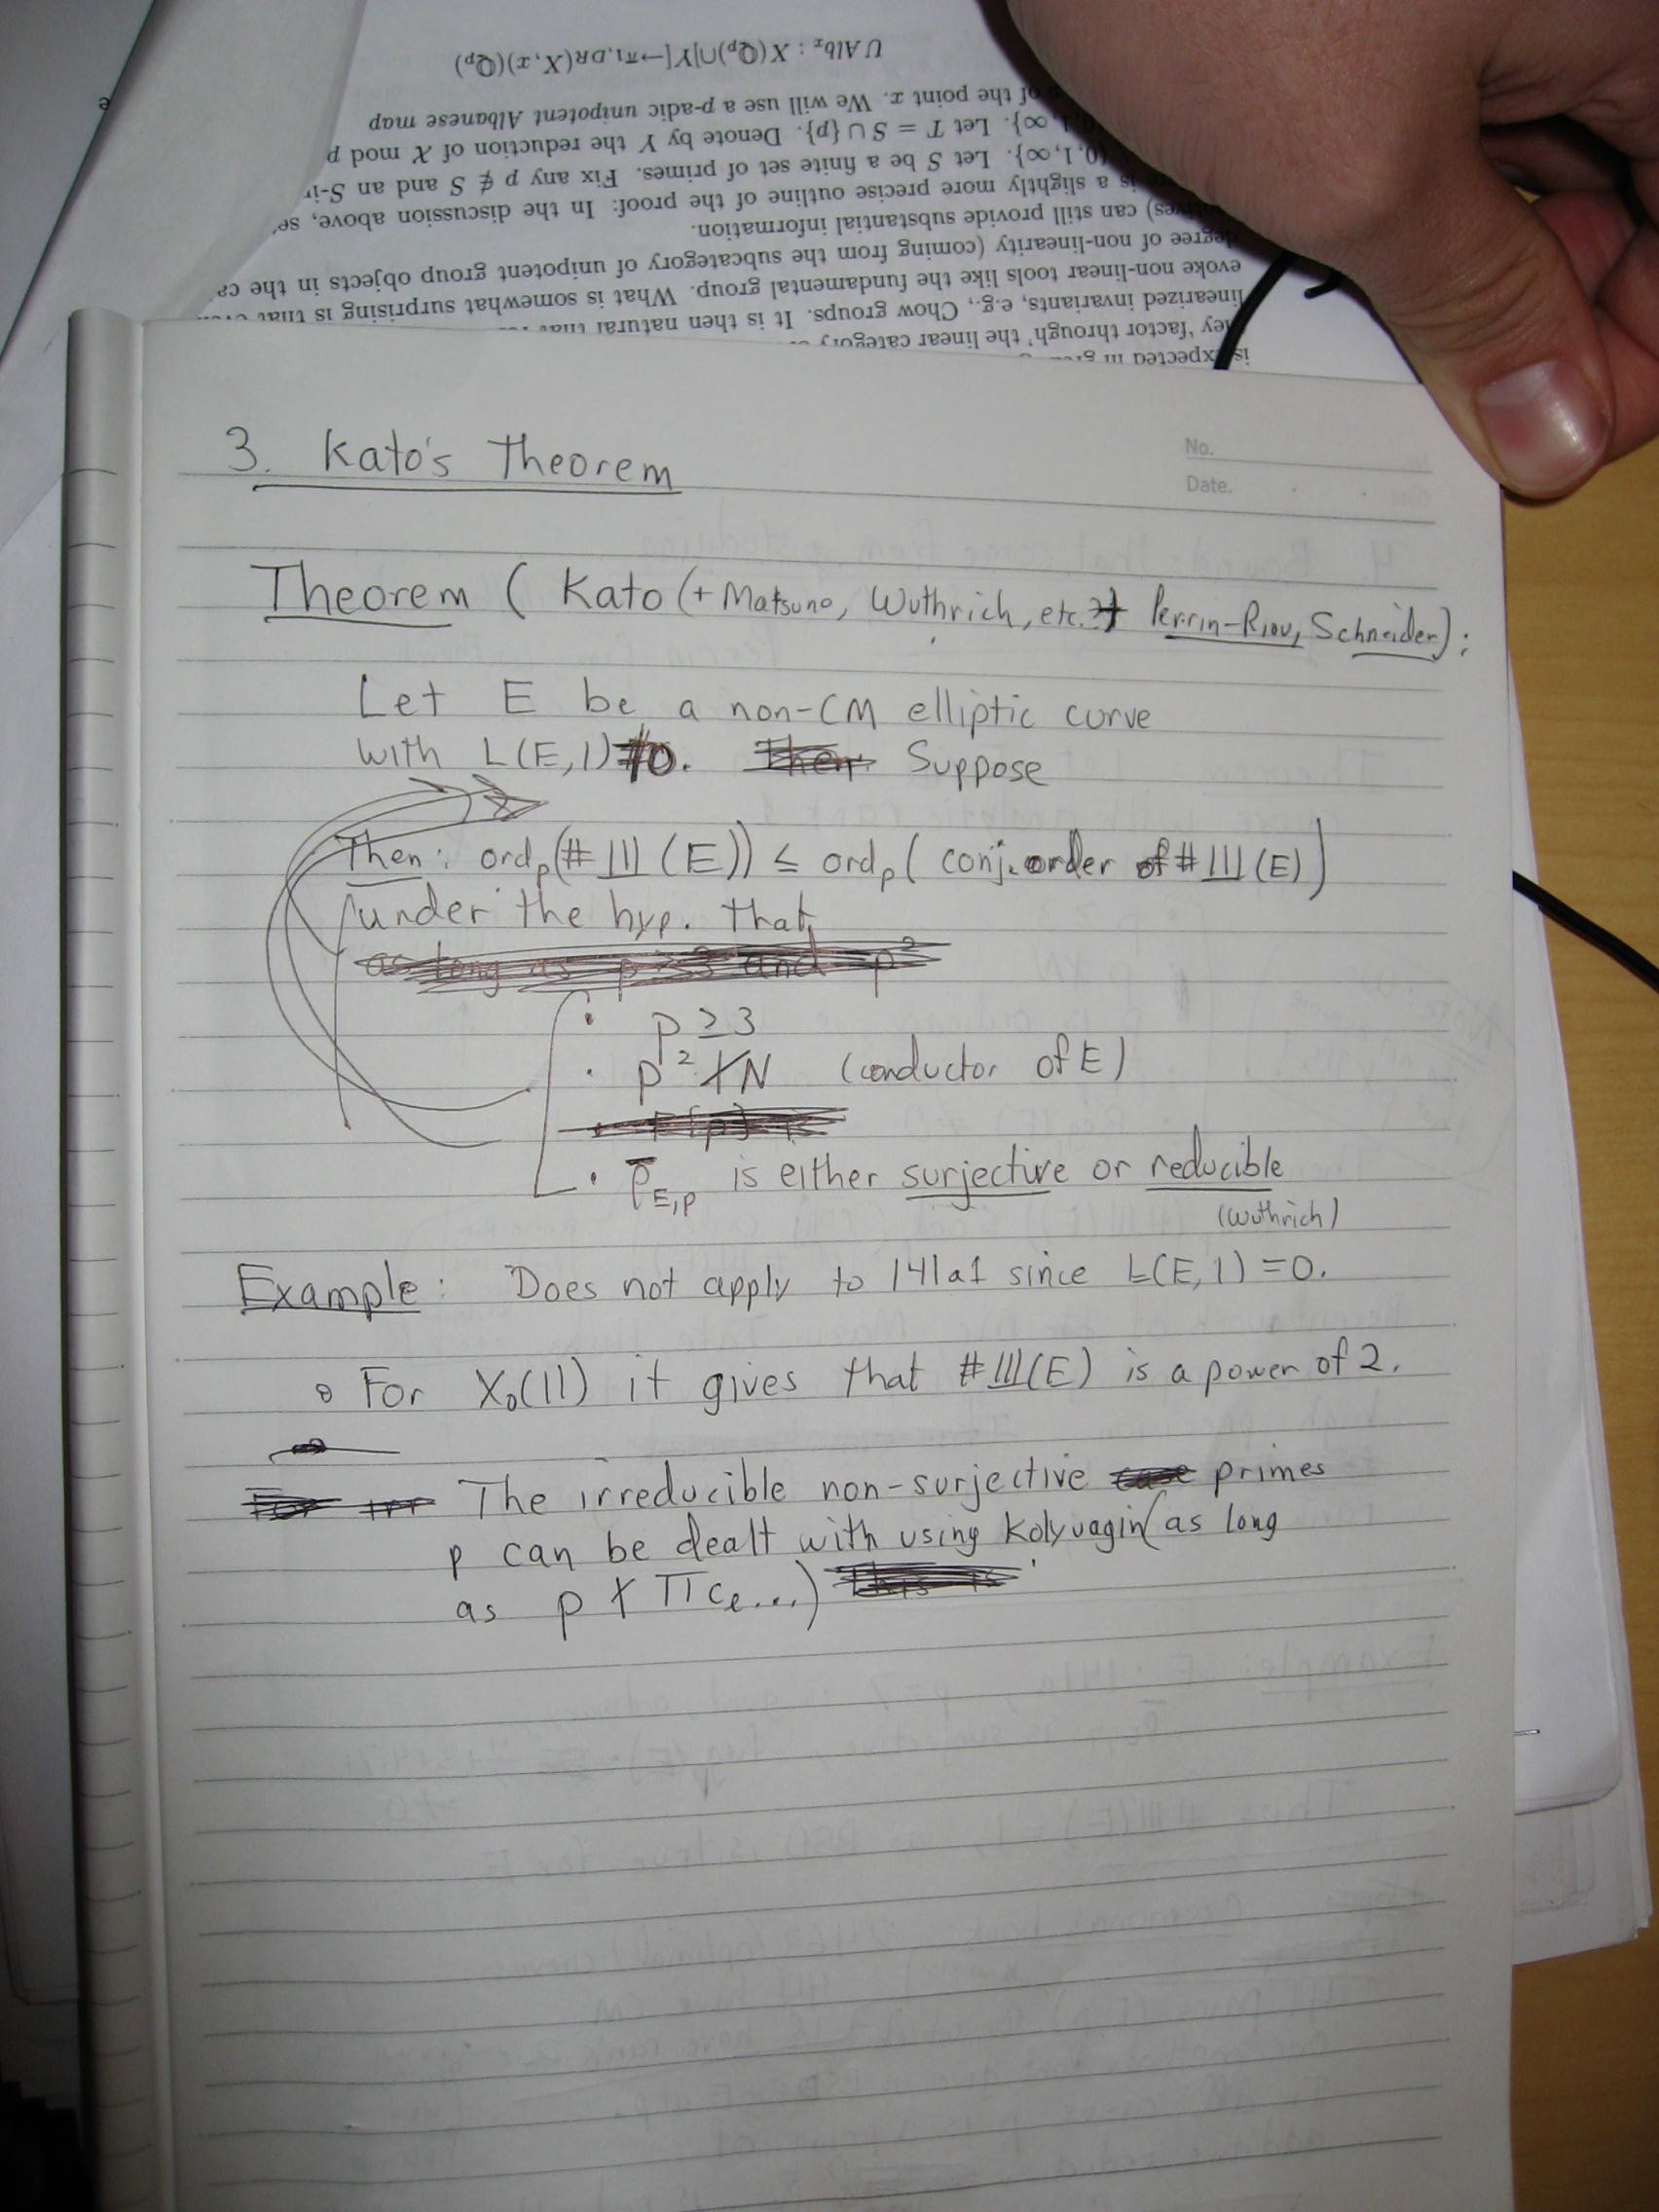 U Alb_x : X(Q_p)∩]Y[→π_{1,DR}(X, x)(Q_p)
of the point x. We will use a p-adic unipotent Albanese map
1, ∞}. Let T = S ∪ {p}. Denote by Y the reduction of X mod p
{0, 1, ∞}. Let S be a finite set of primes. Fix any p ∉ S and an S-i
is a slightly more precise outline of the proof: In the discussion above, se
can still provide substantial information.
degree of non-linearity (coming from the subcategory of unipotent group objects in the ca
evoke non-linear tools like the fundamental group. What is somewhat surprising is that
linearized invariants, e.g., Chow groups. It is then natural that
'factor through' the linear category
expected in
3. Kato's Theorem
No.
Date.
Theorem ( Kato (+ Matsuno, Wuthrich, etc.?) + Perrin-Riou, Schneider):
Let E be a non-CM elliptic curve
with L(E,1) ≠ 0. Then Suppose
Then: ord_p(#Ш(E)) ≤ ord_p( conj. order of #Ш(E))
under the hyp. that
as long as p≥3 and p²
• p ≥ 3
• p² ∤ N (conductor of E)
• E[p] is
• ρ̄_{E,p} is either surjective or reducible
(Wuthrich)
Example: Does not apply to 141a1 since L(E,1) = 0.
• For X₀(11) it gives that #Ш(E) is a power of 2.
For irr The irreducible non-surjective case primes
p can be dealt with using Kolyvagin (as long
as p ∤ ∏c_ℓ...) This is